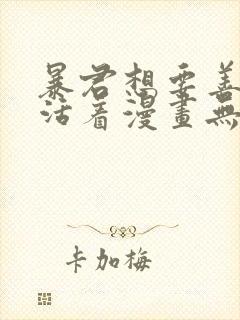 暴君想要善
活着漫畫無
卡加梅